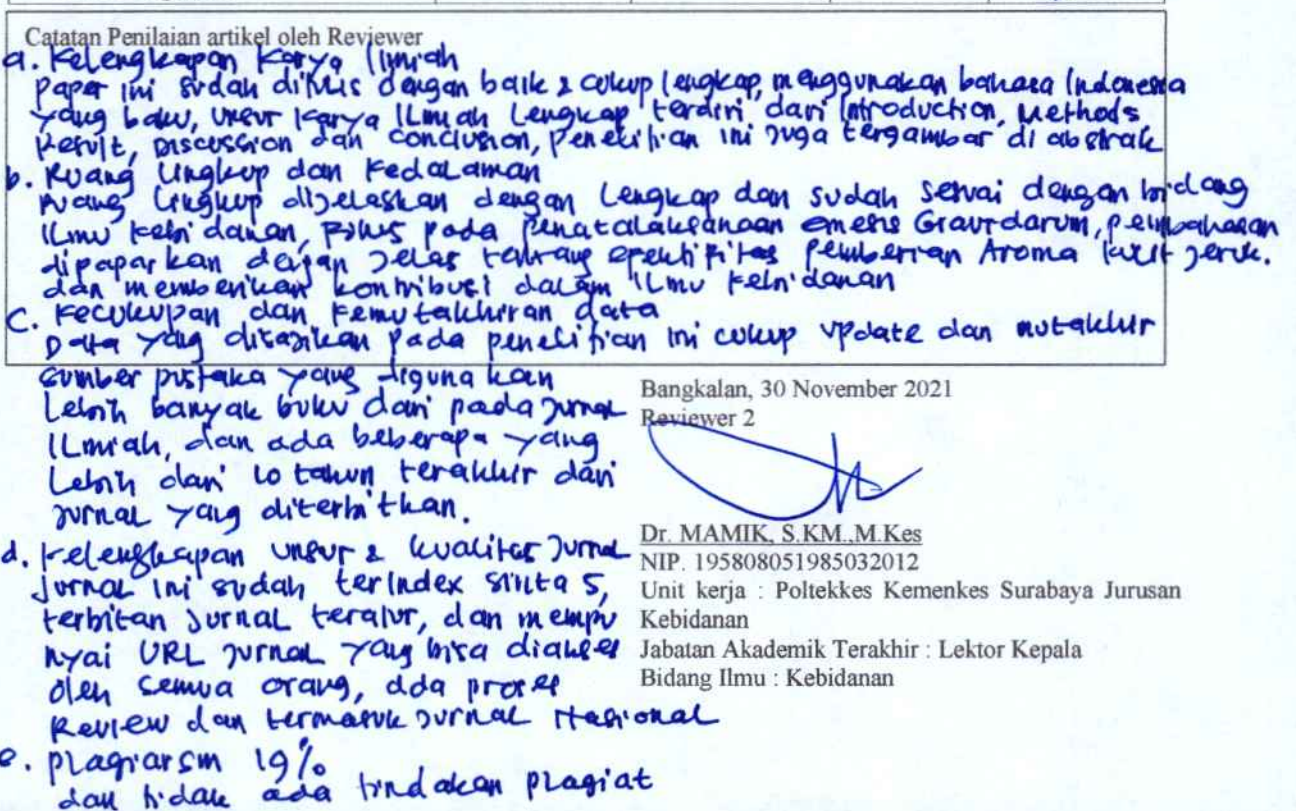 Catatan Penilaian artikel oleh Reviewer
a. Kelengkapan Karya Ilmiah
Paper ini sudah ditulis dengan baik & cukup lengkap, menggunakan bahasa Indonesia
yang baku, unsur Karya ILmiah Lengkap terdiri dari Introduction, Methods
Result, Discussion dan Conclusion, penelitian ini juga tergambar di abstrak
b. Ruang Lingkup dan Kedalaman
Ruang Lingkup dijelaskan dengan Lengkap dan sudah sesuai dengan bidang
ILmu Kebidanan, Fokus pada Penatalaksanaan emesis Gravidarum, pembahasan
dipaparkan dengan jelas tentang efektifitas Pemberian Aroma kulit jeruk.
dan memberikan kontribusi dalam ILmu Kebidanan
C. Kecukupan dan Kemutakhiran data
Data yang disajikan pada penelitian ini cukup update dan mutakhir
sumber pustaka yang digunakan
Lebih banyak buku dari pada jurnal
ILmiah, dan ada beberapa yang
Lebih dari 10 tahun terakhir dari
jurnal yang diterbitkan.
d. Kelengkapan unsur & kualitas jurnal
Jurnal ini sudah terindex sinta 5,
terbitan jurnal teratur, dan mempu
nyai URL jurnal yang bisa diakses
oleh semua orang, ada proses
Review dan termasuk jurnal Nasional
e. Plagiarsm 19%
dan tidak ada tindakan plagiat
Bangkalan, 30 November 2021
Reviewer 2
Dr. MAMIK, S.KM.,M.Kes
NIP. 195808051985032012
Unit kerja : Poltekkes Kemenkes Surabaya Jurusan
Kebidanan
Jabatan Akademik Terakhir : Lektor Kepala
Bidang Ilmu : Kebidanan